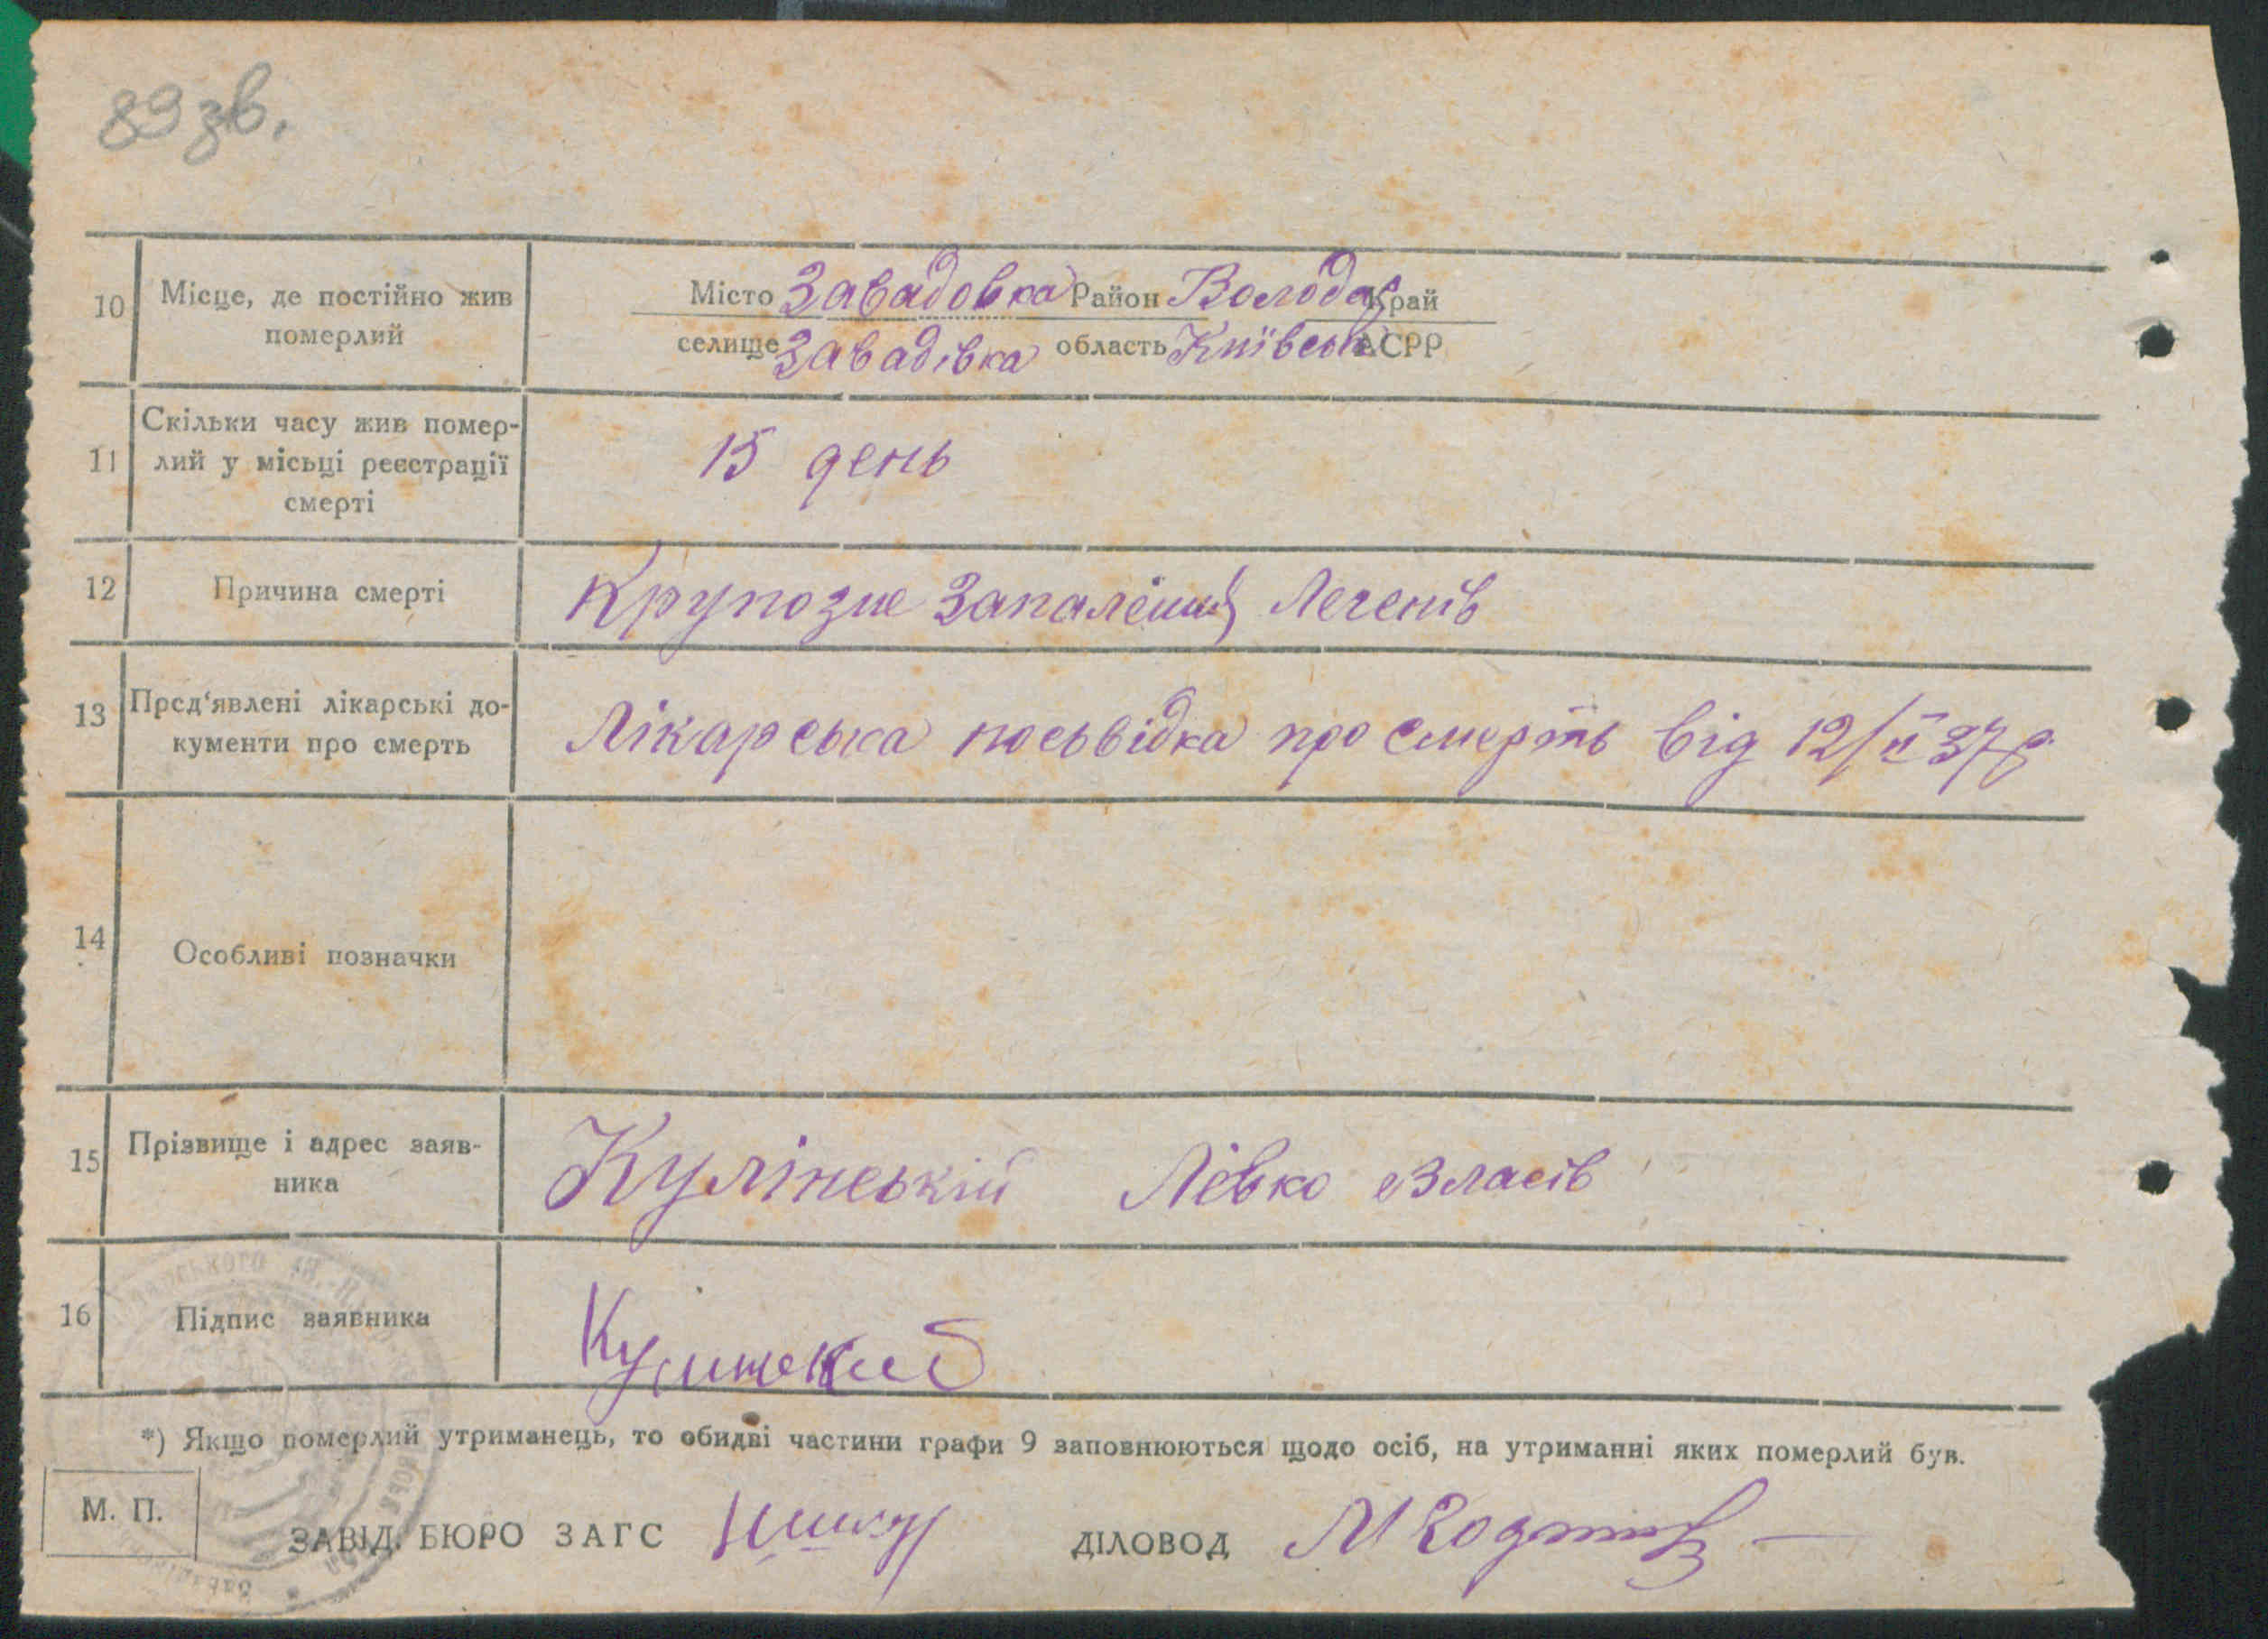 89 зв.
10 Місце, де постійно жив померлий
Місто Завадовка Район Володар Край
селище Завадівка область Київськ АСРР
11 Скільки часу жив помер-
лий у місьці реєстрації
смерті
15 день
12 Причина смерті Крупозне Запаленія Легенів
13 Пред‘явлені лікарські до-
кументи про смерть
Лікарська посьвідка про смерть від 12/II 37 р.
14 Особливі позначки
15 Прізвище і адрес заяв-
ника
Кулінській Лёвко Власів
16 Підпис заявника
*) Якщо померлий утриманець, то обидві частини графи 9 заповнюються щодо осіб, на утриманні яких померлий був.
М. П.
ЗАВІД. БЮРО ЗАГС ДІЛОВОД